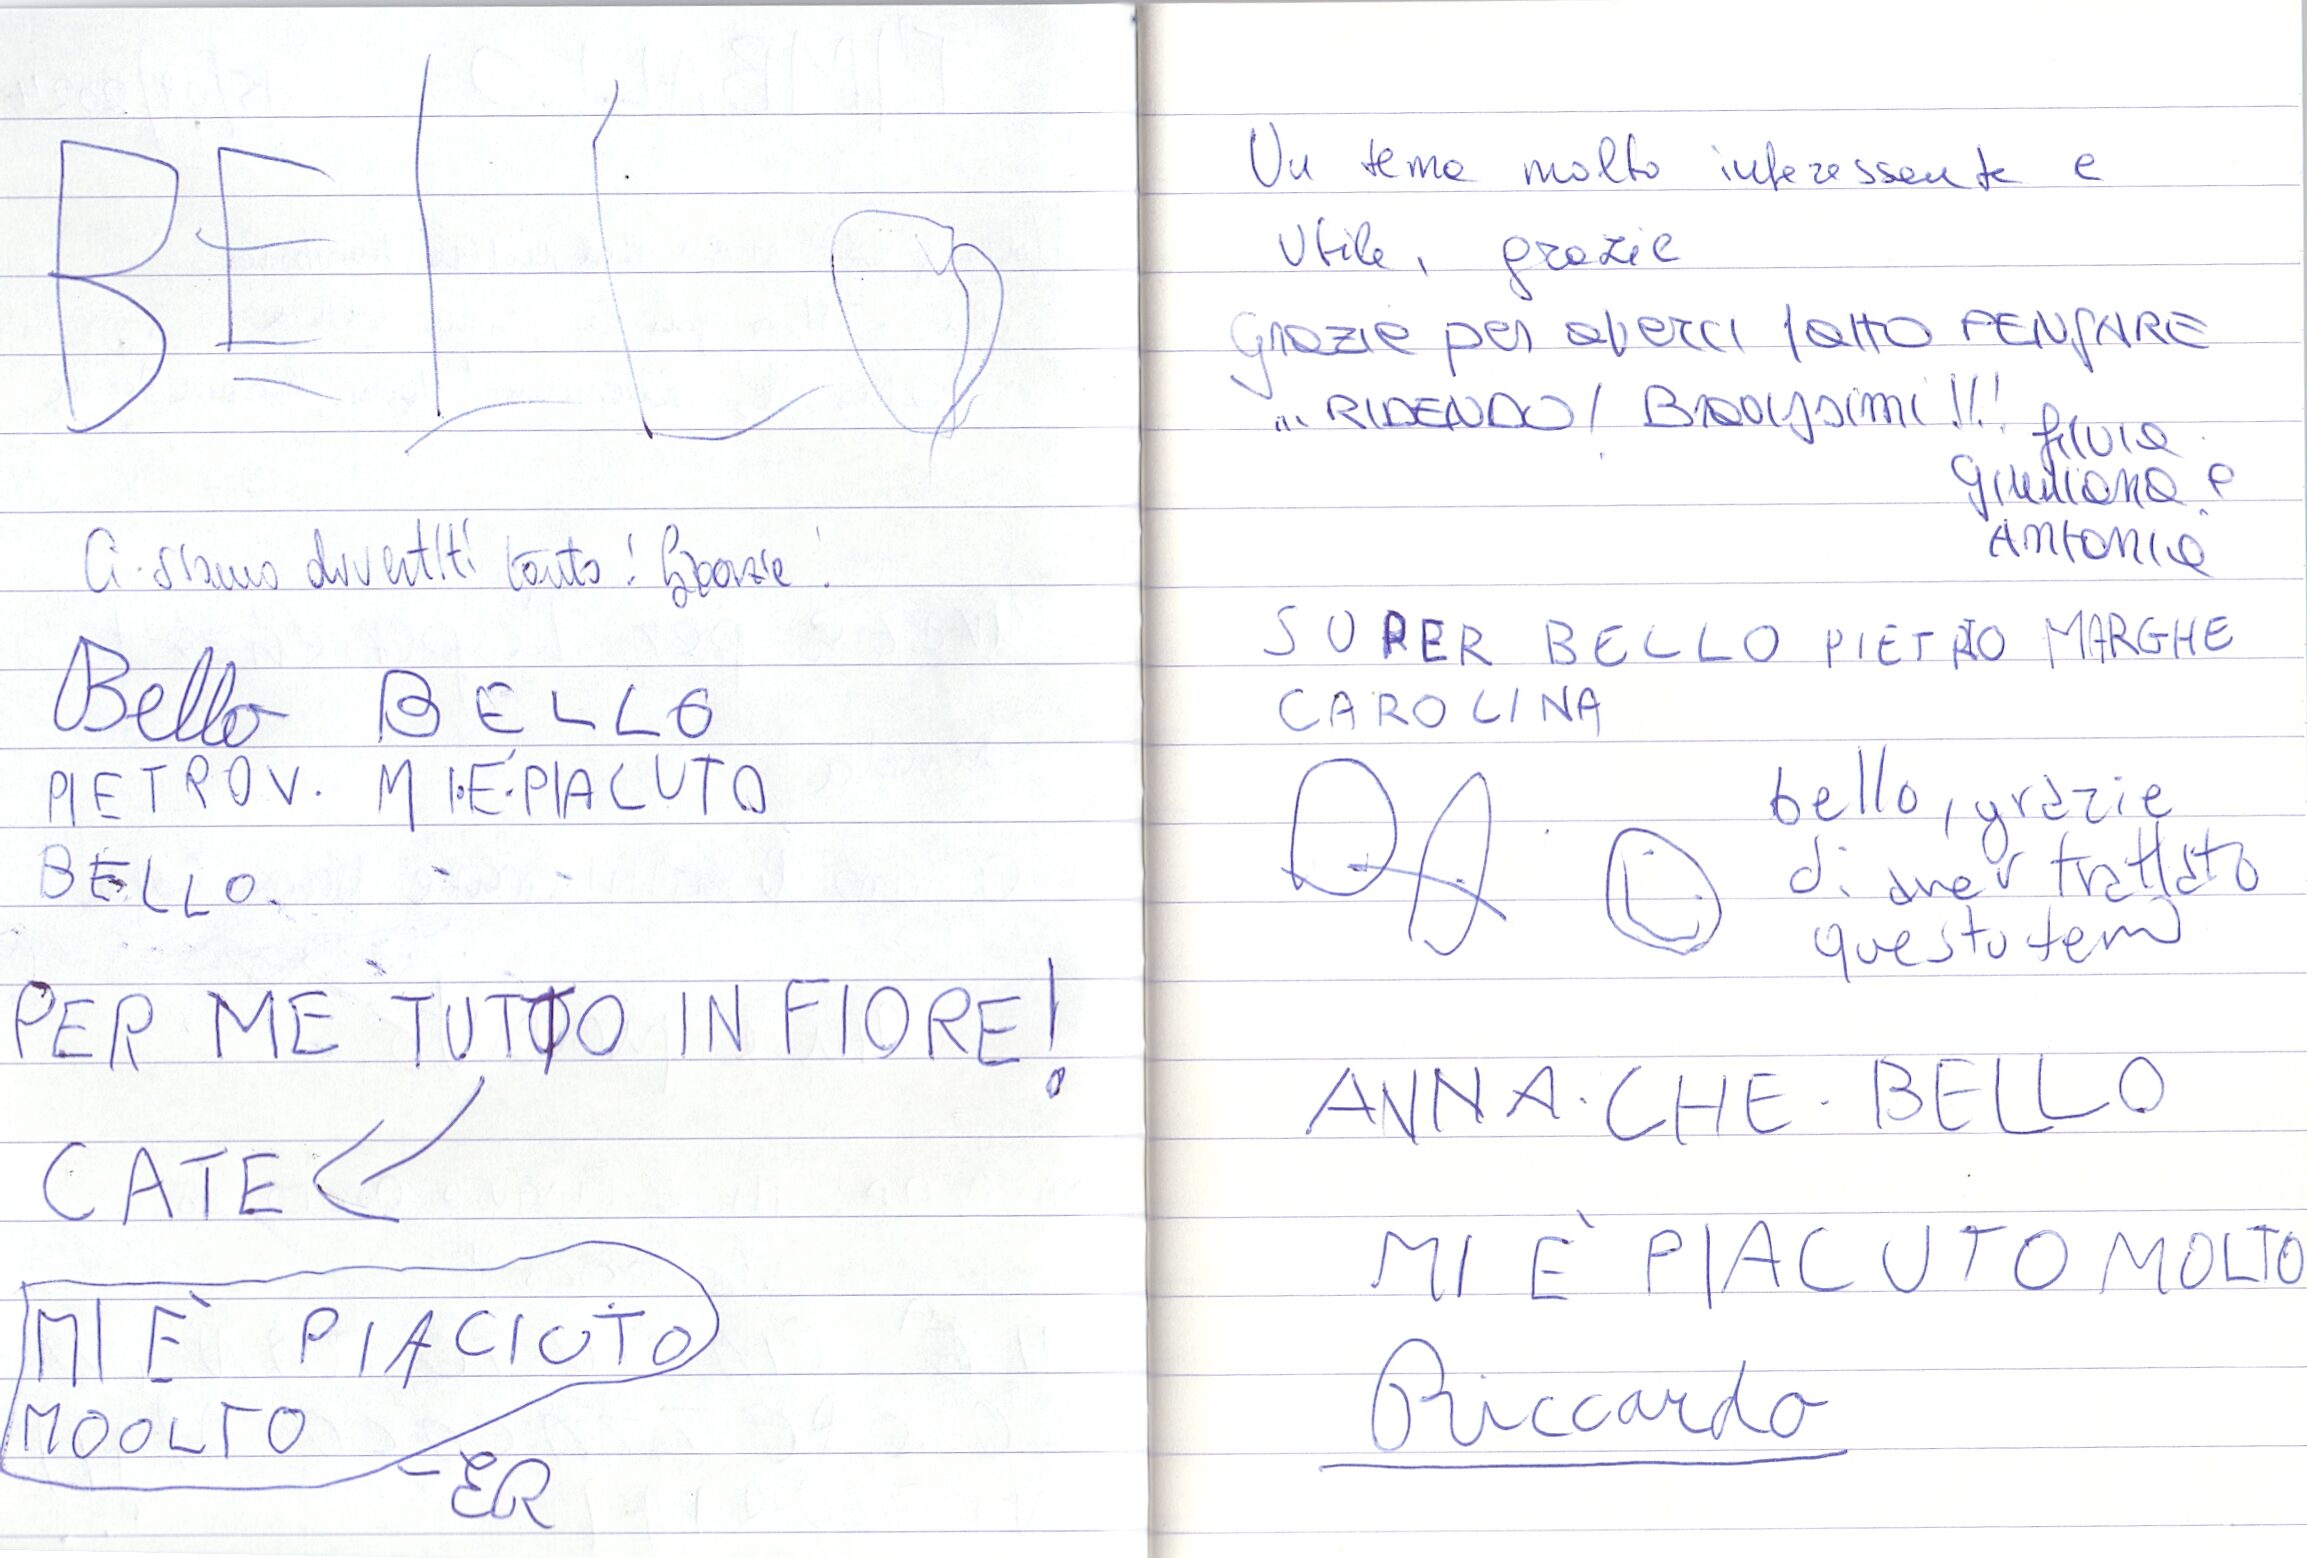 BELLO
Ci siamo divertiti tanto! Grazie!
Bello BELLO
PIETRO V. MI.È.PIACUTO
BELLO.
PER ME TUTTO IN FIORE!
CATE
MI È PIACIUTO
MOOLTO
ER
Un tema molto interessante e
utile, grazie
Grazie per averci fatto PENSARE
... RIDENDO! Bravissimi!!!
Silvia
Giuliana e
Antonia
SUPER BELLO PIETRO MARGHE
CAROLINA
bello, grazie
di aver trattato
questo tema
ANNA. CHE. BELLO
MI È PIACUTO MOLTO
Riccardo